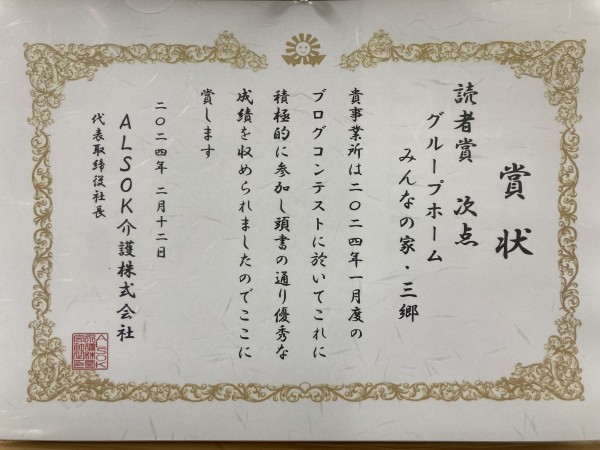 賞状
読者賞 次点
グループホーム
みんなの家・三郷
貴事業所は二〇二四年一月度の
ブログコンテストに於いてこれに
積極的に参加し頭書の通り優秀な
成績を収められましたのでここに
賞します
二〇二四年 二月十二日
ALSOK介護株式会社
代表取締役社長